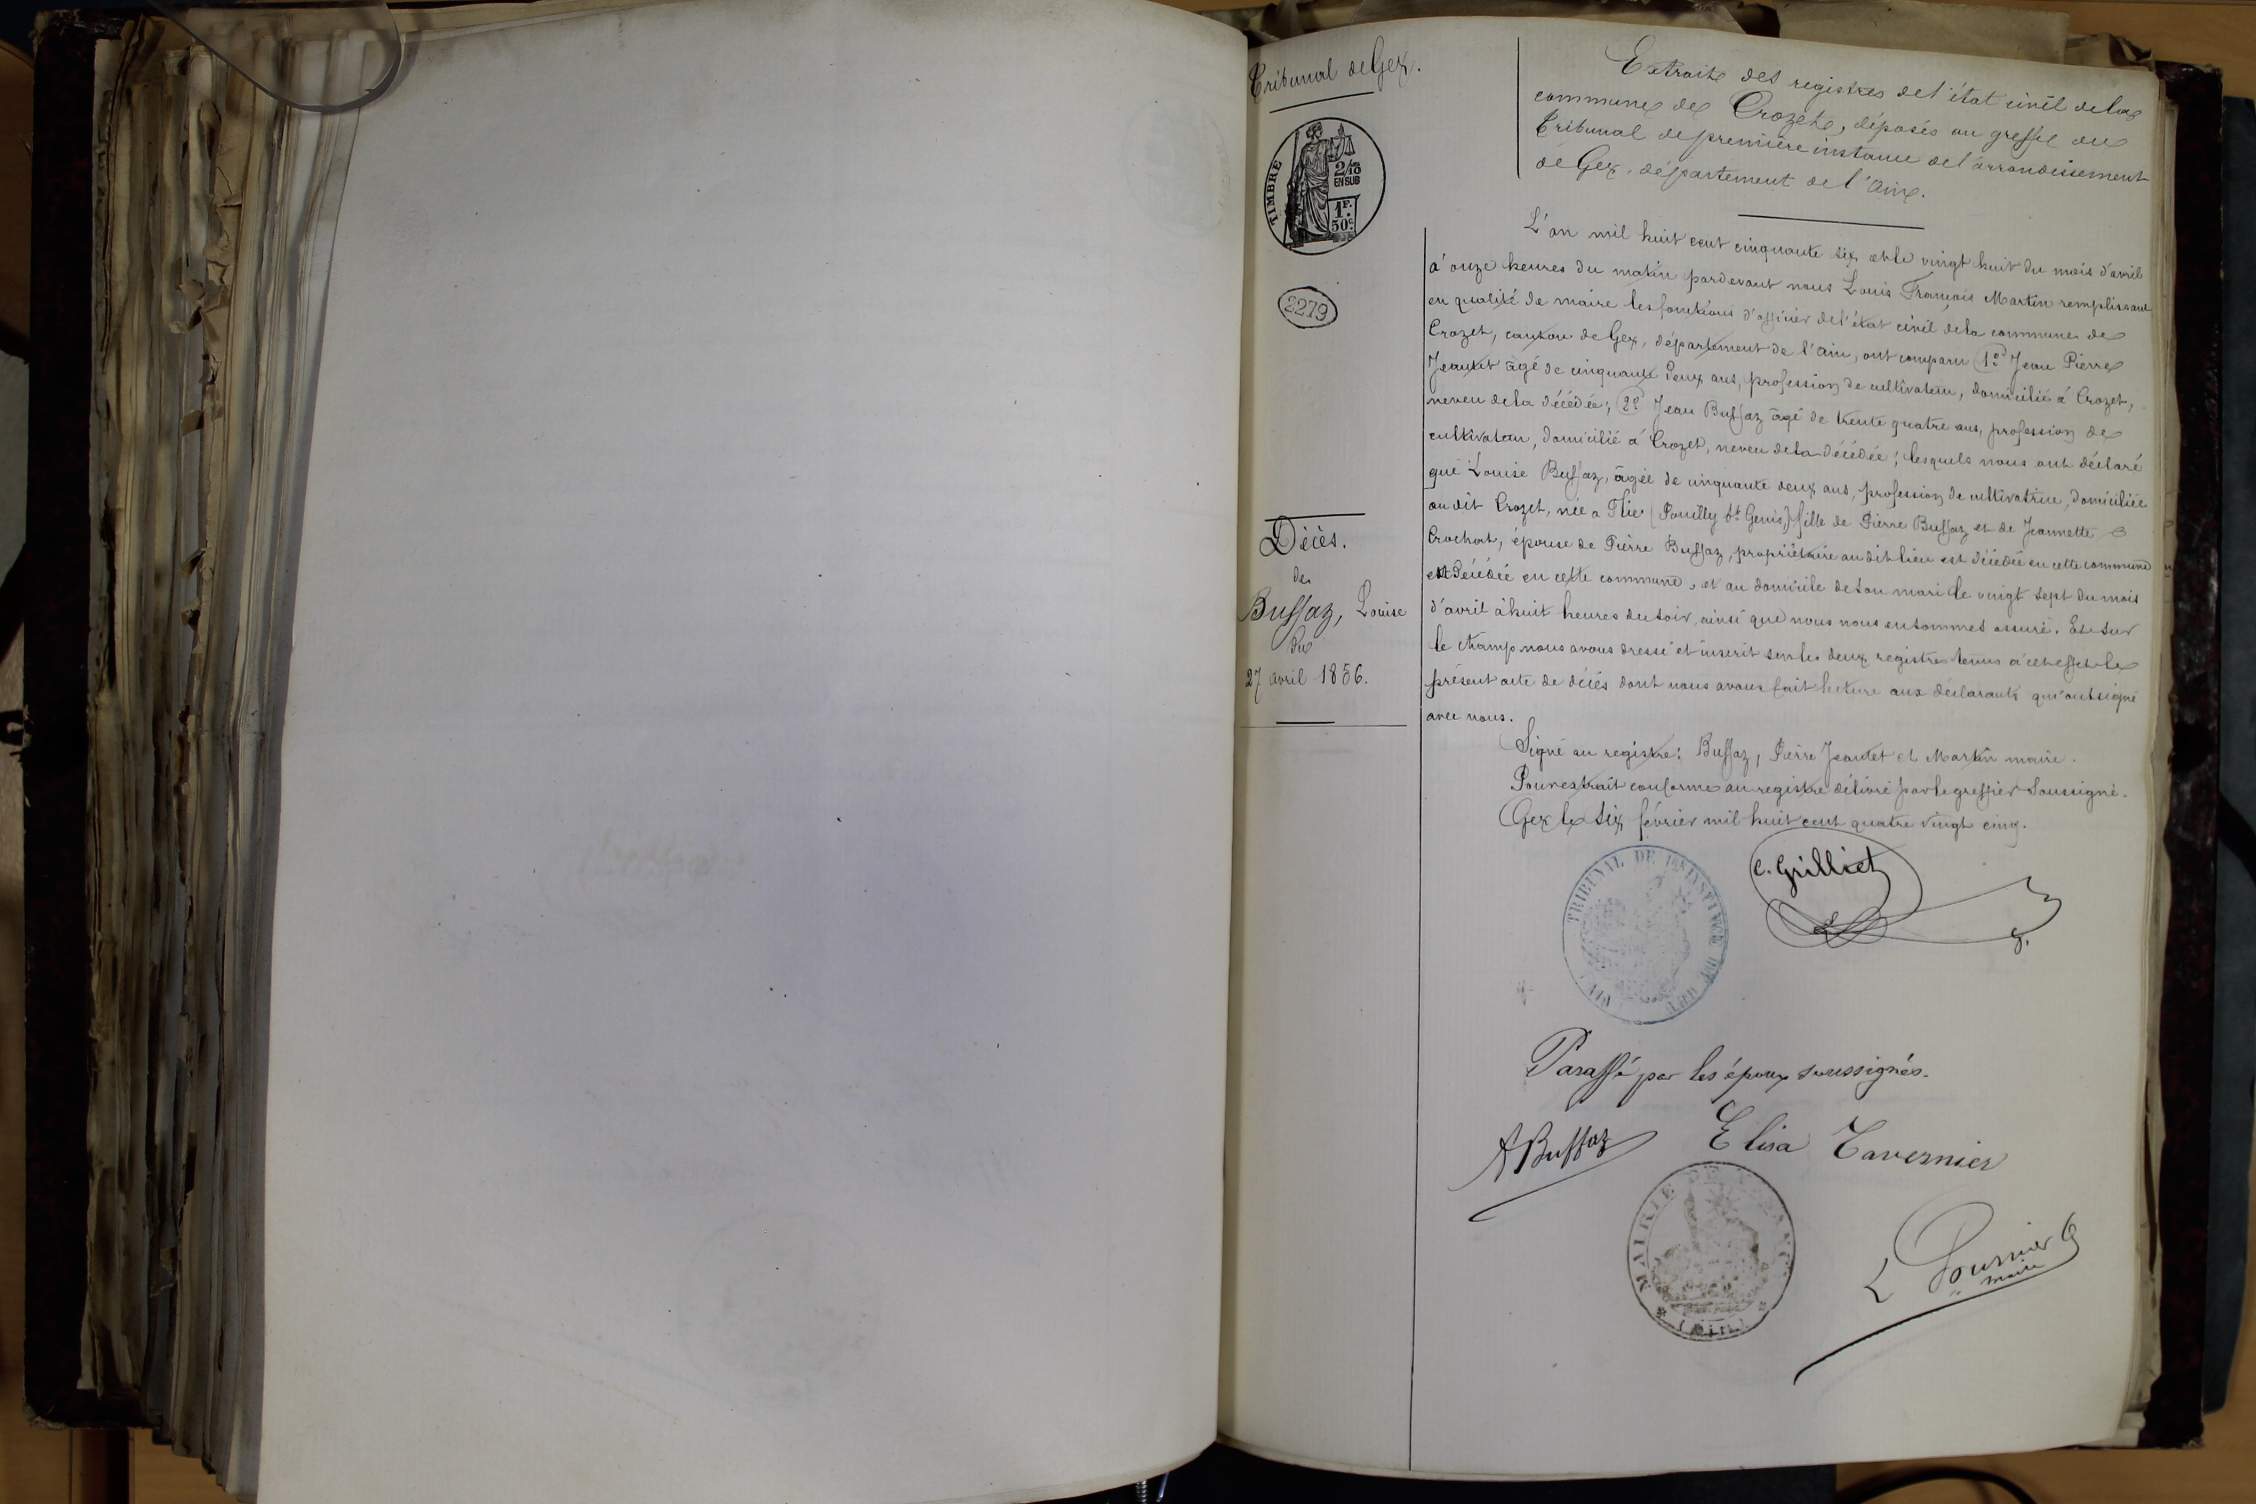 Tribunal de Gex.
TIMBRE
2/10
EN SUS
1F.
50c.
2279
Décès.
de
Buffaz, Louise
Du
27 avril 1856.
Extraits des registres de l'état civil de la
commune de Crozet, déposés au greffe du
Tribunal de première instance de l'arrondissement
de Gex, département de l'Ain.
L'an mil huit cent cinquante six et le vingt huit du mois d'avril
à onze heures du matin pardevant nous Louis François Martin remplissant
en qualité de maire les fonctions d'officier de l'état civil de la commune de
Crozet, canton de Gex, département de l'Ain, ont comparu 1o Jean Pierre
Jeantet âgé de cinquante deux ans, profession de cultivateur, domicilié à Crozet,
neveu de la décédée; 2o Jean Buffaz âgé de trente quatre ans, profession de
cultivateur, domicilié à Crozet, neveu de la décédée; lesquels nous ont déclaré
que Louise Buffaz, âgée de cinquante deux ans, profession de cultivatrice, domiciliée
au dit Crozet, née a Flie (Pouilly St Genis) fille de Pierre Buffaz et de Jeannette
Crochat, épouse de Pierre Buffaz, propriétaire au dit lieu est décédée en cette commune
est décédée en cette commune, et au domicile de son mari le vingt sept du mois
d'avril à huit heures du soir, ainsi que nous nous en sommes assuré. Et sur
le champ nous avons dressé et inscrit sur les deux registres tenus à cet effet le
présent acte de décès dont nous avons fait lecture aux déclarants qui ont signé
avec nous.
Signé au registre: Buffaz, Pierre Jeantet et Martin maire.
Pour extrait conforme au registre délivré par le greffier soussigné.
Gex le six février mil huit cent quatre vingt cinq.
C. Grilliet
TRIBUNAL DE 1re INSTANCE DE GEX
AIN
Paraffé par les époux soussignés.
ABuffaz
Elisa Tavernier
MAIRIE DE
(Ain)
L Fournier
maire